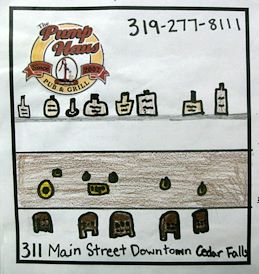 The
Pump
Haus
PUB & GRILL
319-277-8111
311 Main Street Downtown Cedar Falls